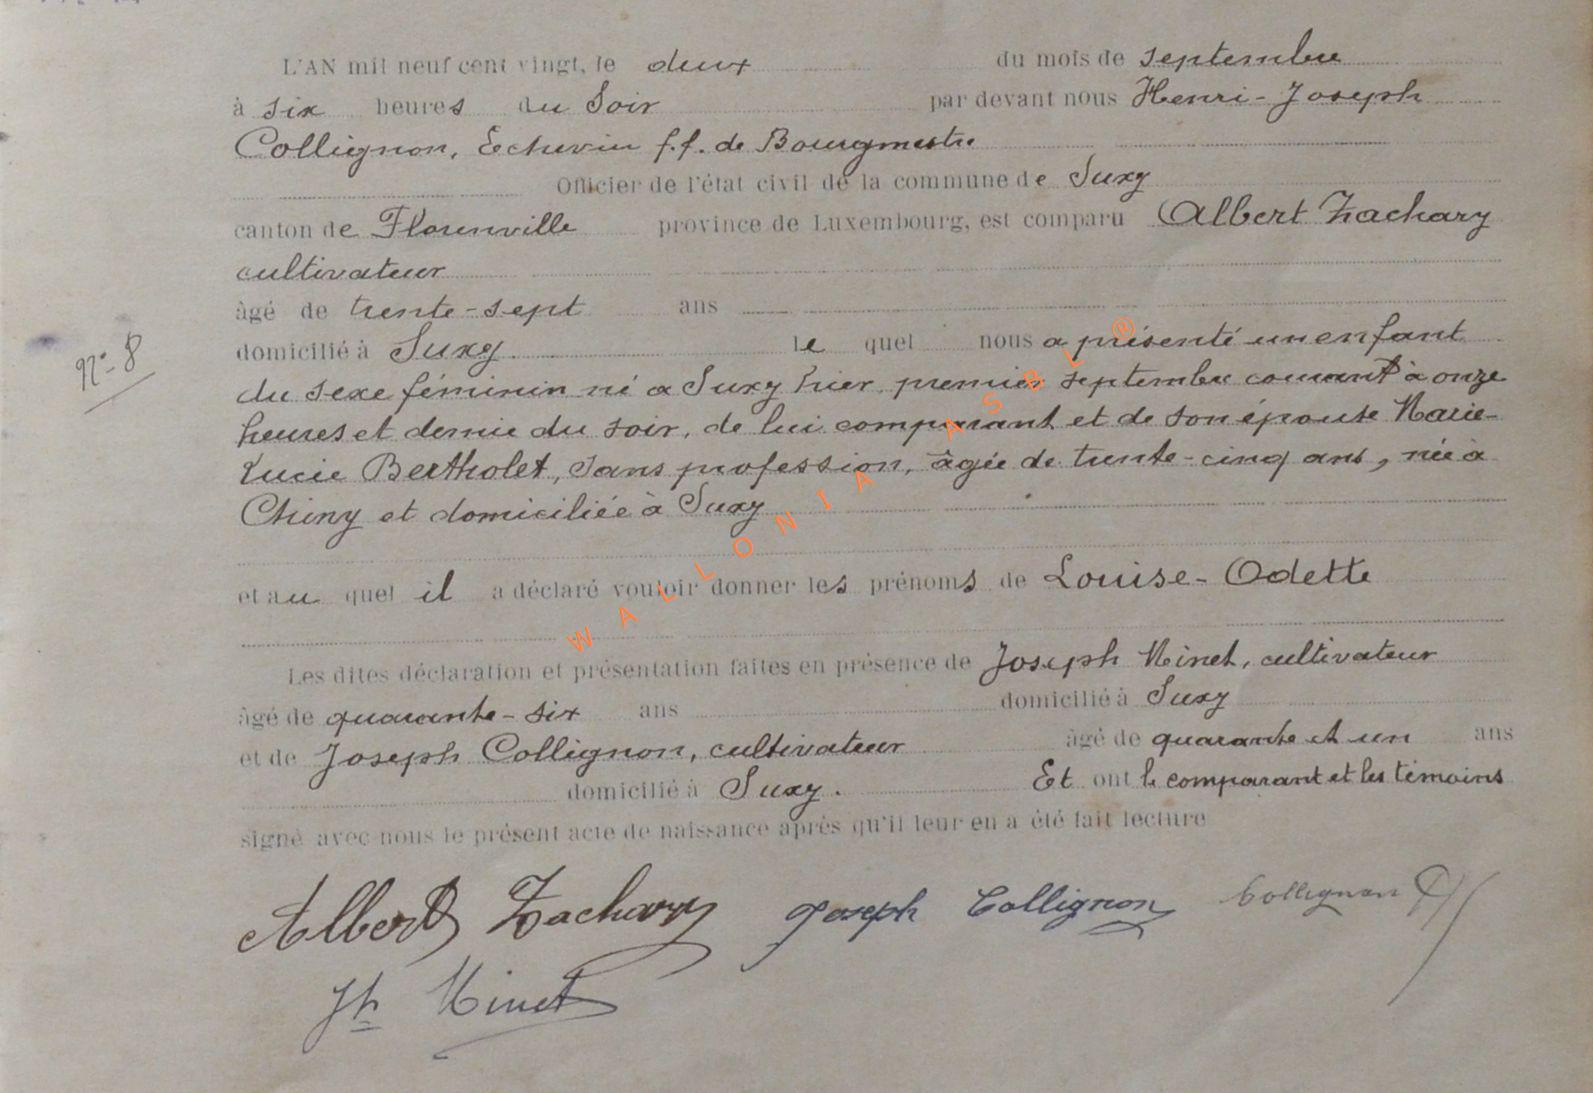 L'AN mil neuf cent vingt, le deux du mois de septembre
à six heures du Soir par devant nous Henri-Joseph
Collignon, Echevin f.f. de Bourgmestre
Officier de l'état civil de la commune de Suxy
canton de Florenville province de Luxembourg, est comparu Albert Zachary
cultivateur
âgé de trente-sept ans
domicilié à Suxy. le quel nous a présenté un enfant
N° 8
du sexe féminin né a Suxy hier, premier septembre courant à onze
heures et demie du soir, de lui comparant et de son épouse Marie-
Lucie Bertholet, sans profession, âgée de trente-cinq ans, née à
Chiny et domiciliée à Suxy
et au quel il a déclaré vouloir donner les prénoms de Louise-Odette
WALLONIA ASBL ®
Les dites déclaration et présentation faites en présence de Joseph Ninet, cultivateur
âgé de quarante-six ans domicilié à Suxy
et de Joseph Collignon, cultivateur âgé de quarante et un ans
domicilié à Suxy. Et ont le comparant et les témoins
signé avec nous le présent acte de naissance après qu'il leur en a été fait lecture
Albert Zachary Joseph Collignon Collignon
Jh Ninet